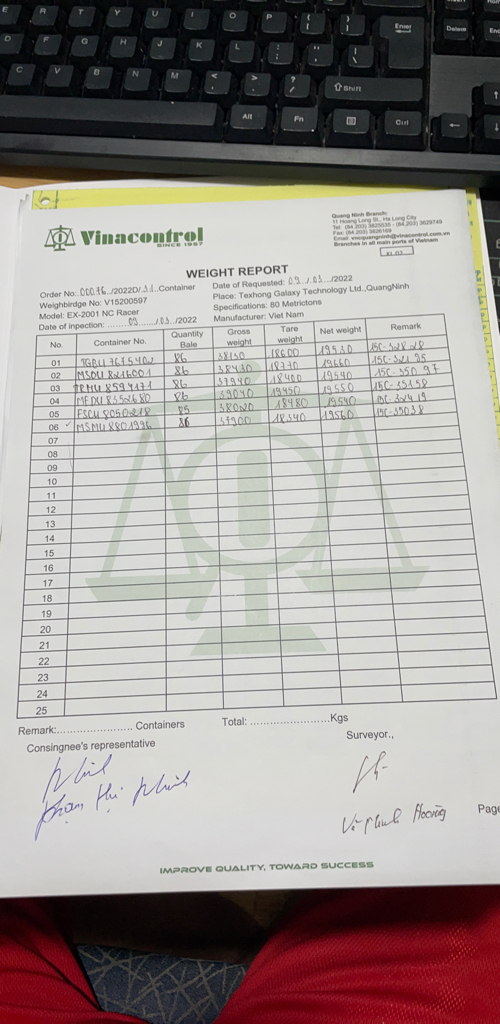 Vinacontrol
SINCE 1957
Quang Ninh Branch:
11 Hoang Long St., Ha Long City
Branches in all main ports of Vietnam
WEIGHT REPORT
Order No: 00076 /2022D/31 Container
Date of Requested: 09 / 03 /2022
Weighbirdge No: V15200597
Place: Texhong Galaxy Technology Ltd.,QuangNinh
Model: EX-2001 NC Racer
Specifications: 80 Metrictons
Date of inpection: ........09....../.03 ../2022
Manufacturer: Viet Nam
No. Container No. Quantity Bale Gross weight Tare weight Net weight Remark
01 TGBU 7675402 86 38130 18600 19530 15C-328 28
02 MSDU 8216001 86 38430 18770 19660 15C-321 95
03 86 37940 18400 19540 15C-350 97
04 MEDU 8352680 86 39040 19450 19550 15C-35158
05 FSCU 8050218 85 38020 18480 19540 15C-32419
06 MSMU 8801996 86 37900 18340 19560 15C-35038
07
08
09
10
11
12
13
14
15
16
17
18
19
20
21
22
23
24
25
Remark:....................... Containers Total: ........................Kgs
Consingnee's representative
Surveyor.,
Phạm Thị
Hoàng
Page
IMPROVE QUALITY, TOWARD SUCCESS
Enter
Delete
Shift
Alt
Fn
Ctrl